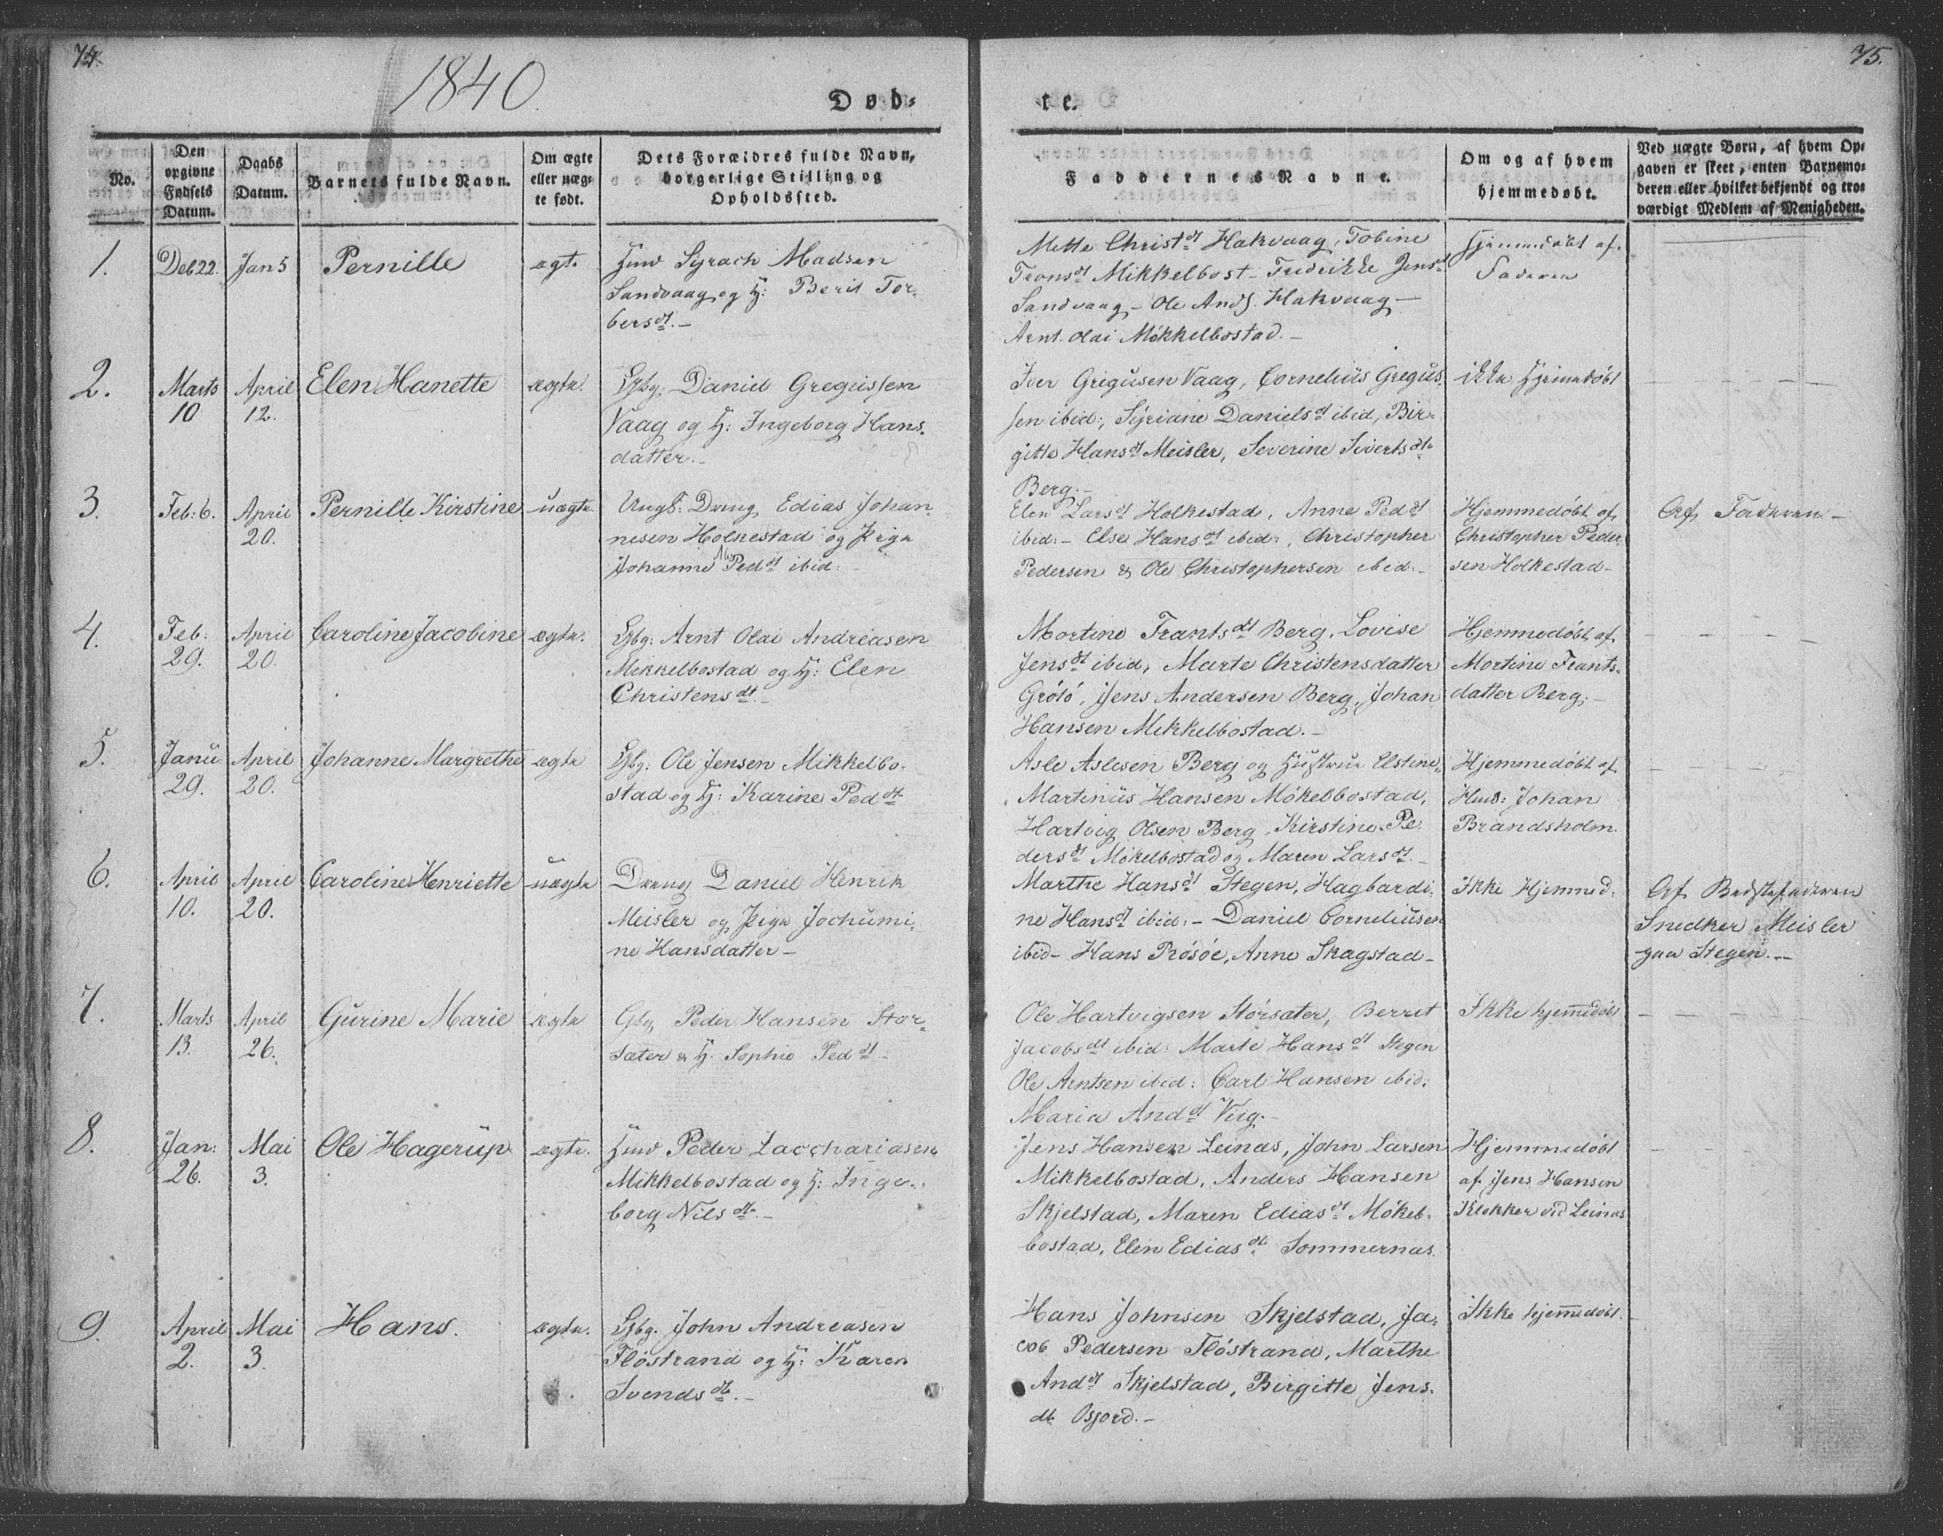 74.
1840.
Døb-
No.
Den
opgivne
Fødsels
Datum.
Daabs
Datum.
Barnets fulde Navn.
Om ægte
eller uæg-
te født.
Dets Forældres fulde Navn,
borgerlige Stilling og
Opholdssted.
1.
Deb 22.
Jan 5
Pernille
ægt.
Huus Syrach Madsen
Sandvaag og H: Berit Tor-
bersdt.-
2.
Marts
10
April
12.
Elen Hanette
ægte.
Gbg: Daniel Gregussen
Vaag og H: Ingeborg Hans-
datter.-
3.
Feb: 6.
April
20.
Pernille Kirstine
uægte
Ungk: Dreng Edias Johan-
nesen Holkestad og Pige
Johanne Peddt ibid:-
4.
Feb:
29.
April
20.
Caroline Jacobine
ægte.
Gbg: Arnt Olai Andreasen
Mekkelbostad og H: Elen
Christensdt.-
5.
Janu
29.
April
20.
Johanne Margrethe
ægte
Gbg: Ole Jensen Mikkelbo-
stad og H: Karine Peddt.
6.
April
10.
April
20.
Caroline Henriette
uægte
Dreng Daniel Henrik
Meisler og Pige Jochumi-
ne Hansdatter-
7.
Marts
13.
April
26.
Gurine Marie
ægte
Gbg Peder Hansen Stor-
sæter & H: Sophie Peddt-
8.
Jan:
26.
Mai
3.
Ole Hagerup
ægte.
Huus Peder Zacchariasen
Mikkelbostad og H: Inge-
borg Nilsdt.-
9.
April
2.
Mai
3.
Hans.
ægte.
Gbg. John Andreasen
Fløstrand og H: Karen
Svendsdt.-
75.
te.
Faddernes Navne.
Om og af hvem
hjemmedøbt.
Ved uægte Børn, af hvem Op-
gaven er skeet, enten Barnemo-
deren eller hvilket bekjendt og tro-
værdigt Medlem af Menigheden.
Mette Christdt Hakvaag, Tobine
Tronsdt Mikkelbost- Fredrikke Jensdt
Sandvaag- Ole Ands. Hakvaag-
Arnt Olai Møkkelbostad.-
Hjemmedøbt af
Faderen
Iver Gregusen Vaag, Cornelius Gregus-
sen ibid:, Syriane Danielsdt ibid, Bir-
gitte Hansdt Meisler, Severine Sivertsdt
Berg.-
ikke Hjemedøbt
Elen Larsdt Holkestad, Anne Peddt
ibid:- Else Hansdt ibid:, Christopher
Pedersen & Ole Christophersen ibid:-
Hjemmedøbt af
Christopher Peder-
sen Holkestad-
Af Faderen-
Mortine Frantsdt Berg, Lovise
Jensdt ibid, Marte Christensdatter
Grøtø, Jens Andersen Berg, Johan
Hansen Mekkelbostad.-
Hjemmedøbt af
Mortine Frants-
datter Berg:-
Asle Aslesen Berg og Hustrue Elstine,
Martinus Hansen Møkelbostad,
Hartvig Olsen Berg, Kirstine Pe-
dersdt Møkelbostad og Maren Larsdt.-
Hjemmedøbt af
Huus: Johan
Brandsholm.
Marthe Hansdt Stegen, Hagbardi-
ne Hansdt ibid:- Daniel Corneliusen
ibid- Hans Prøsøe, Anne Skagstad-
Ikke Hjemmed:
Af Bedstefaderen
Snedker Meisler
paa Stegen.-
Ole Hartvigsen Størsæter, Berret
Jacobsdt ibid: Marte Hansdt Stegen
Ole Arntsen ibid: Carl Hansen ibid:
Maria Anddt Vug.-
Ikke hjemedøbt
Jens Hansen Leinas, John Larsen
Mikkelbostad, Anders Hansen
Skjelstad, Maren Ediasdt Møkel-
bostad, Elen Ediasdt Sommernas.
Hjemmedøbt
af Jens Hansen
Klokker ved Leinas
Hans Johnsen Skjelstad, Ja-
cob Pedersen Fløstrand, Marthe
Anddt Skjelstad, Birgitte Jens-
dt Bsjord.-
Ikke hjemedøbt.